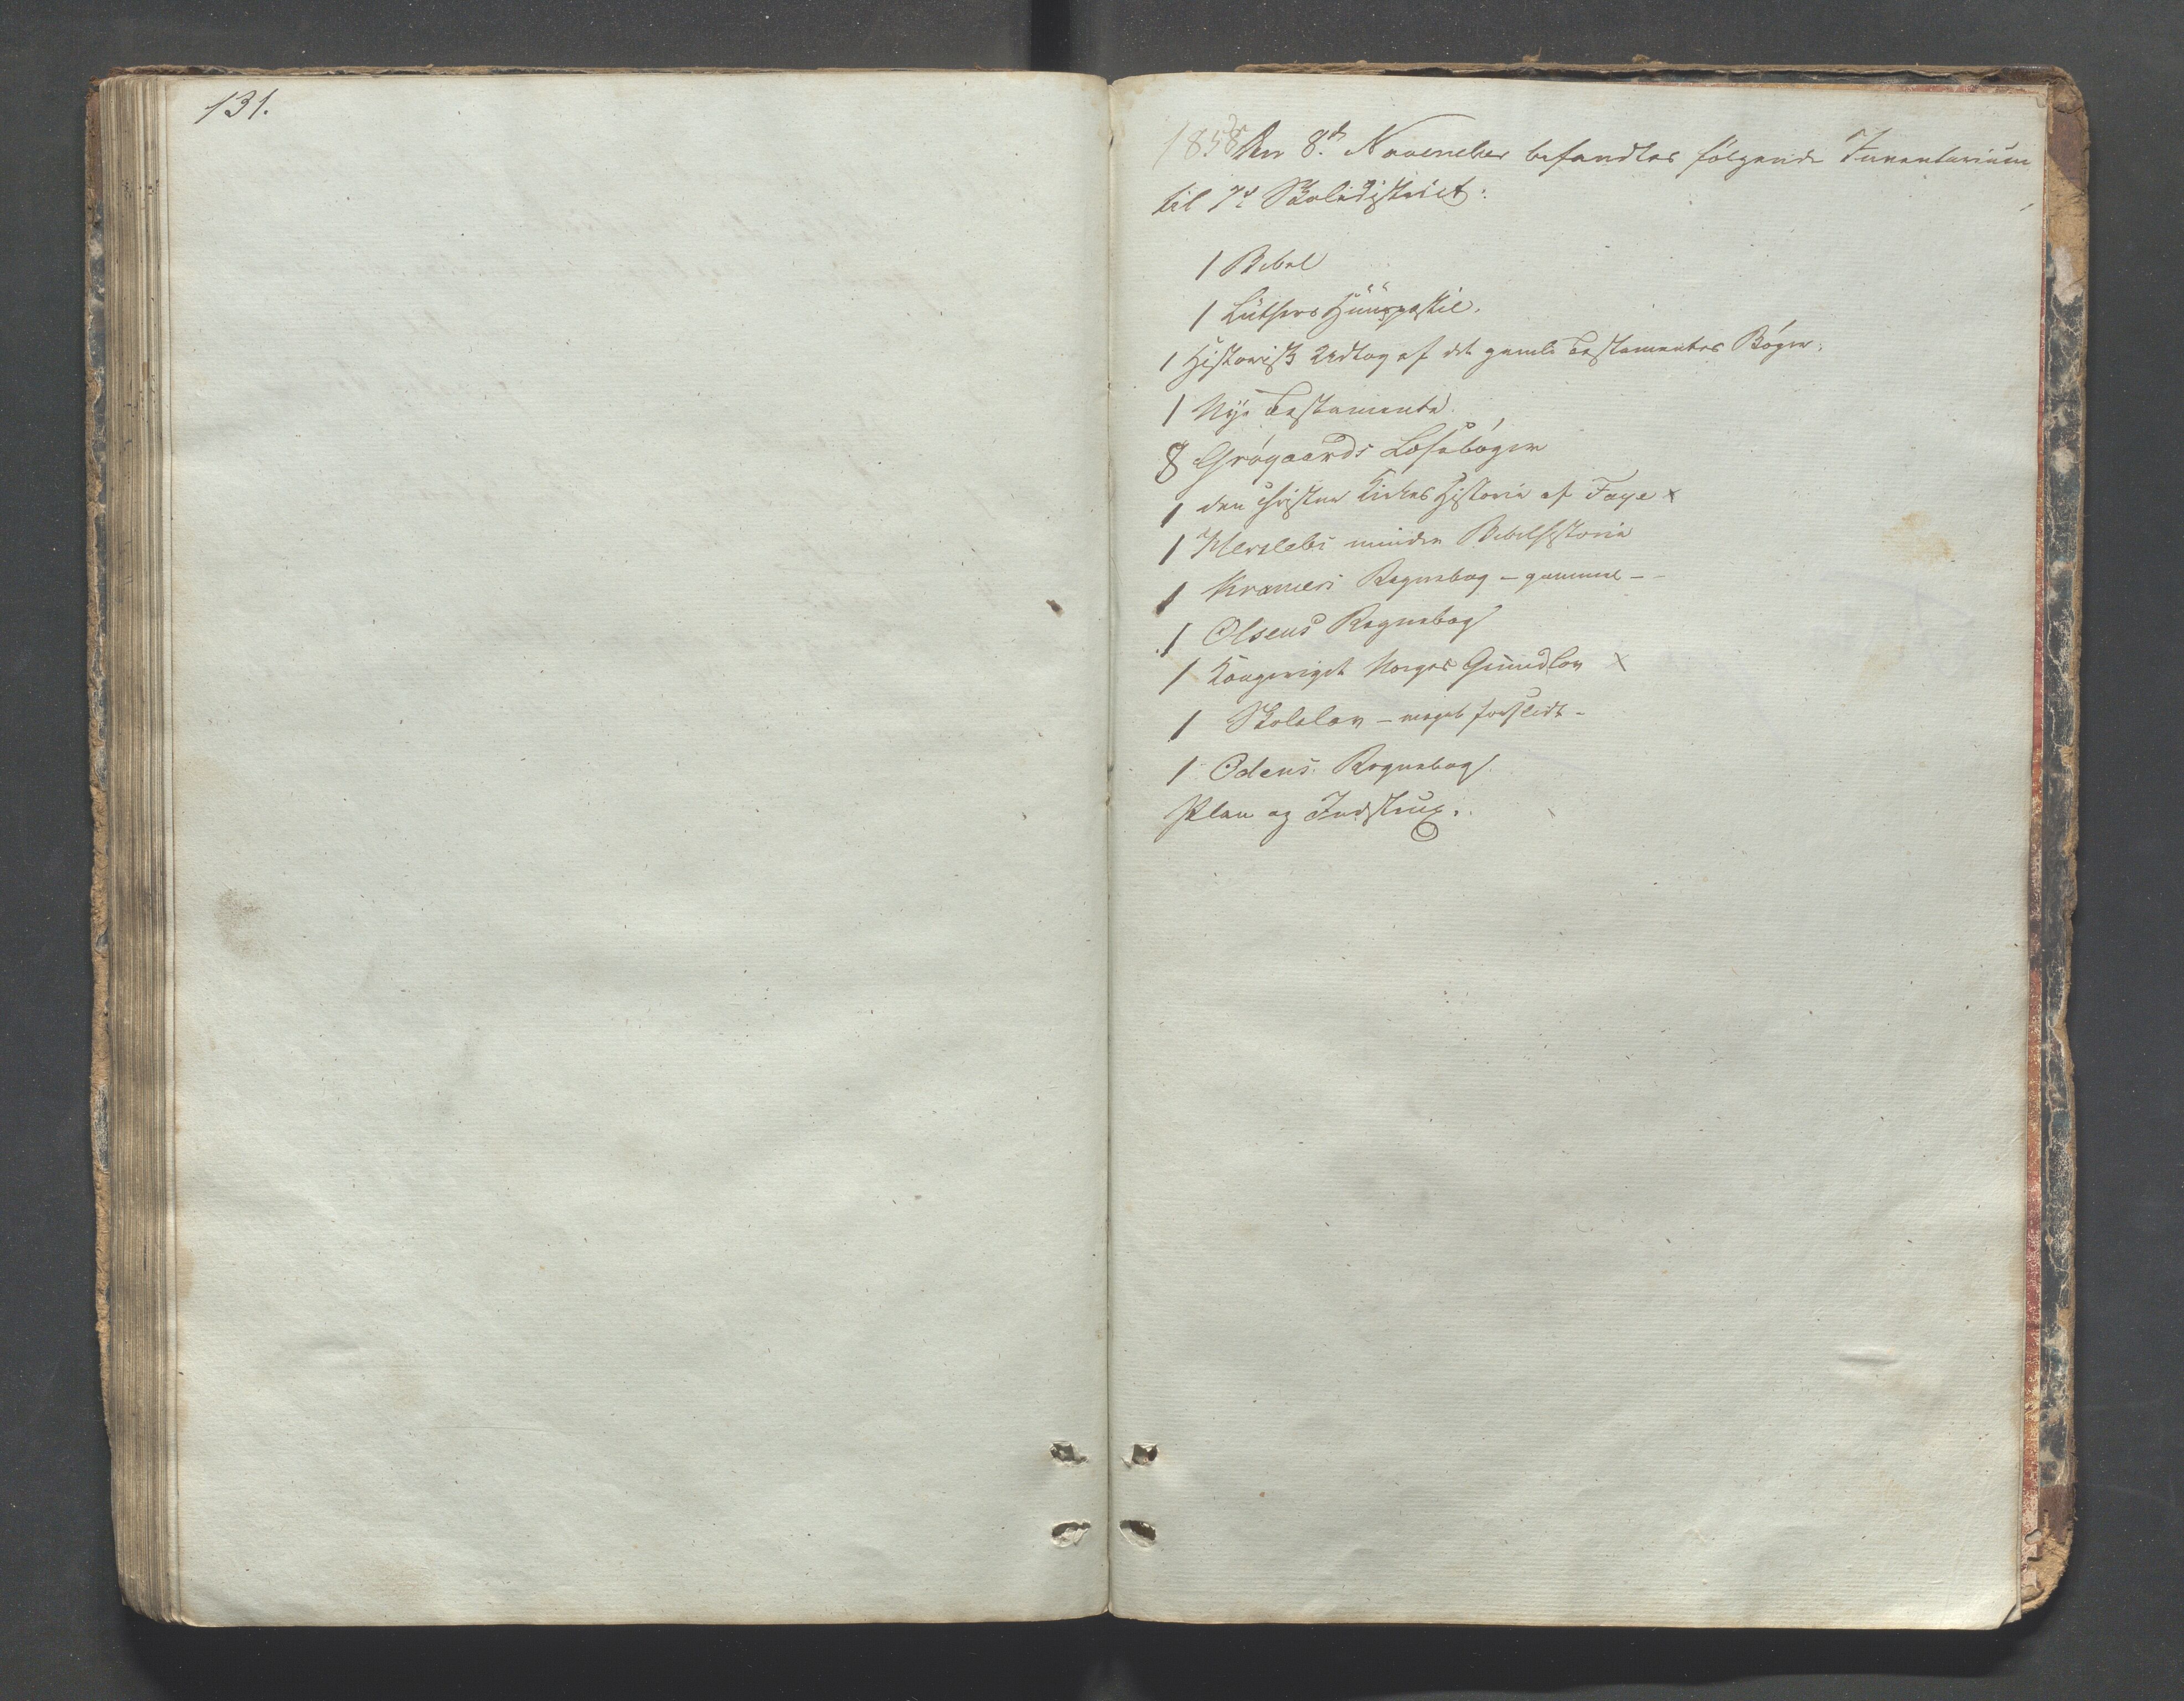 131.
1858 den 8de November befandtes følgende Inventarium
til 7de Skoledistrict:
1 Bibel
1 Luthers Huuspostil.
1 Historisk Udtog af det gamle Testamentes Bøger.
1 Nye Testamente.
8 Grøgaards Læsebøger
1 den christne Kirkes Historie af Faye x
1 Herslebs mindre Bibelhistorie
1 Kramers Regnebog - gammel -
1 Olsens Regnebog
1 Kongeriget Norges Grundlov x
1 Skolelov - meget forslidt -
1 Odens Regnebog
Plan og Instrux.